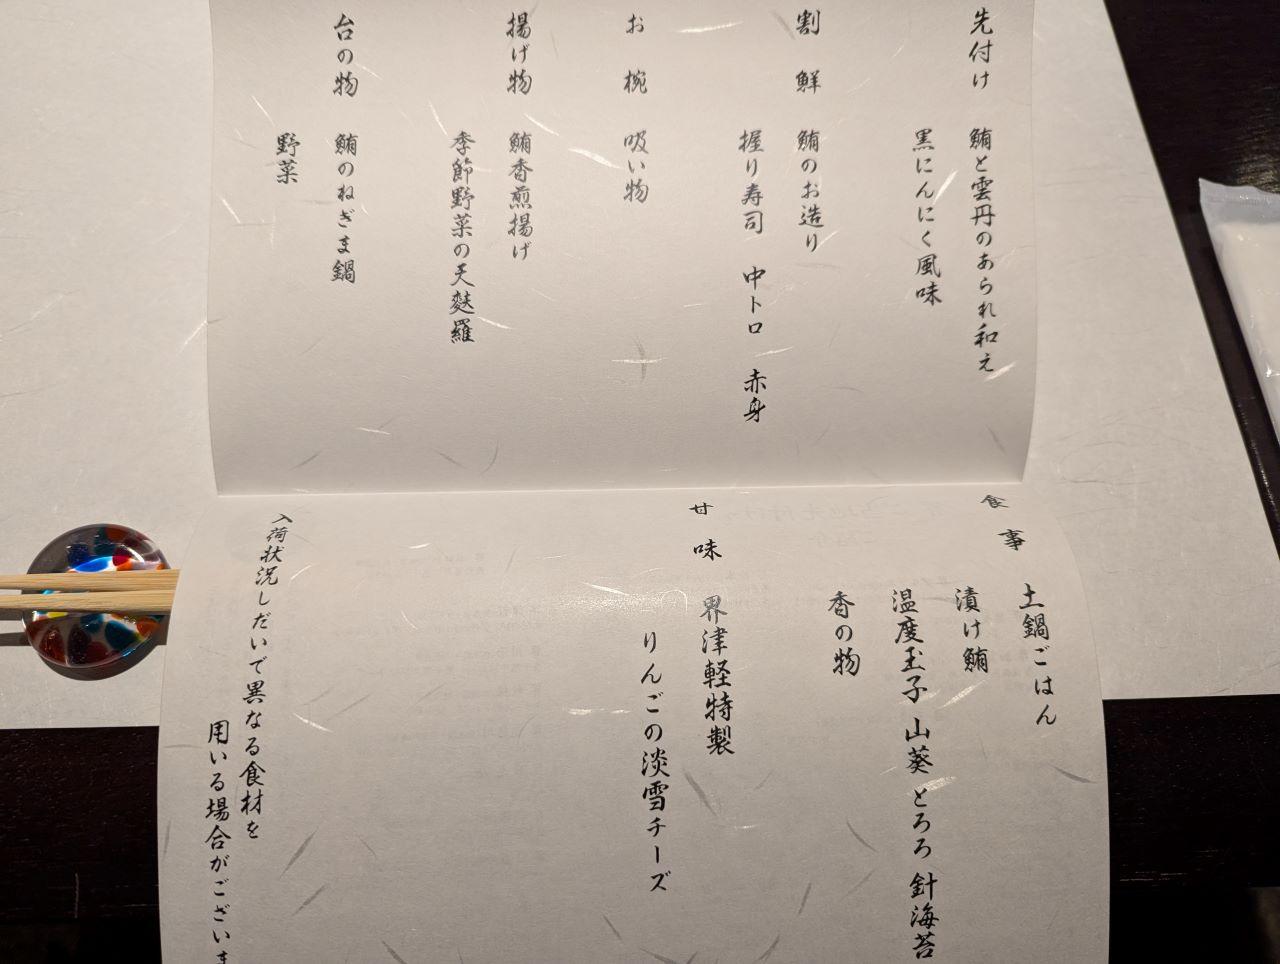 先付け　鮪と雲丹のあられ和え
黒にんにく風味
割　鮮　鮪のお造り
握り寿司　中トロ　赤身
お　椀　吸い物
揚げ物　鮪香煎揚げ
季節野菜の天麩羅
台の物　鮪のねぎま鍋
野菜
食　事　土鍋ごはん
漬け鮪
温度玉子　山葵　とろろ　針海苔
香の物
甘　味　界津軽特製
りんごの淡雪チーズ
入荷状況しだいで異なる食材を
用いる場合がございま